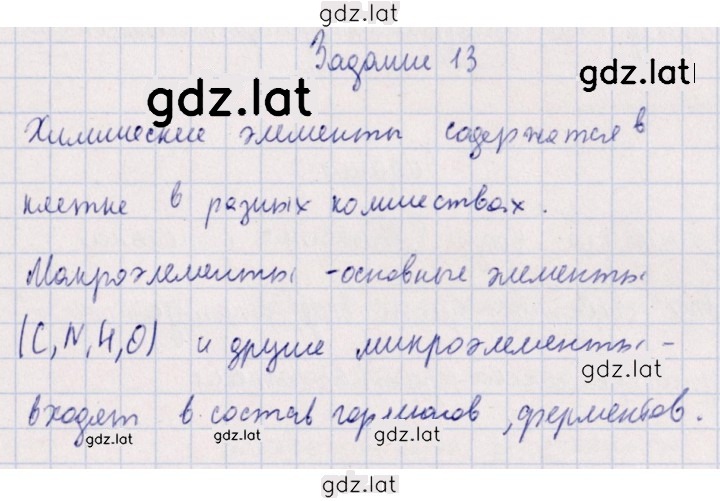 gdz.lat
Задание 13
gdz.lat
gdz.lat
Химические элементы содержатся в
клетке в разных количествах.
Макроэлементы - основные элементы
(C, N, H, O) и другие микроэлементы -
gdz.lat
входят в состав гормонов, ферментов.
gdz.lat gdz.lat gdz.lat
gdz.lat